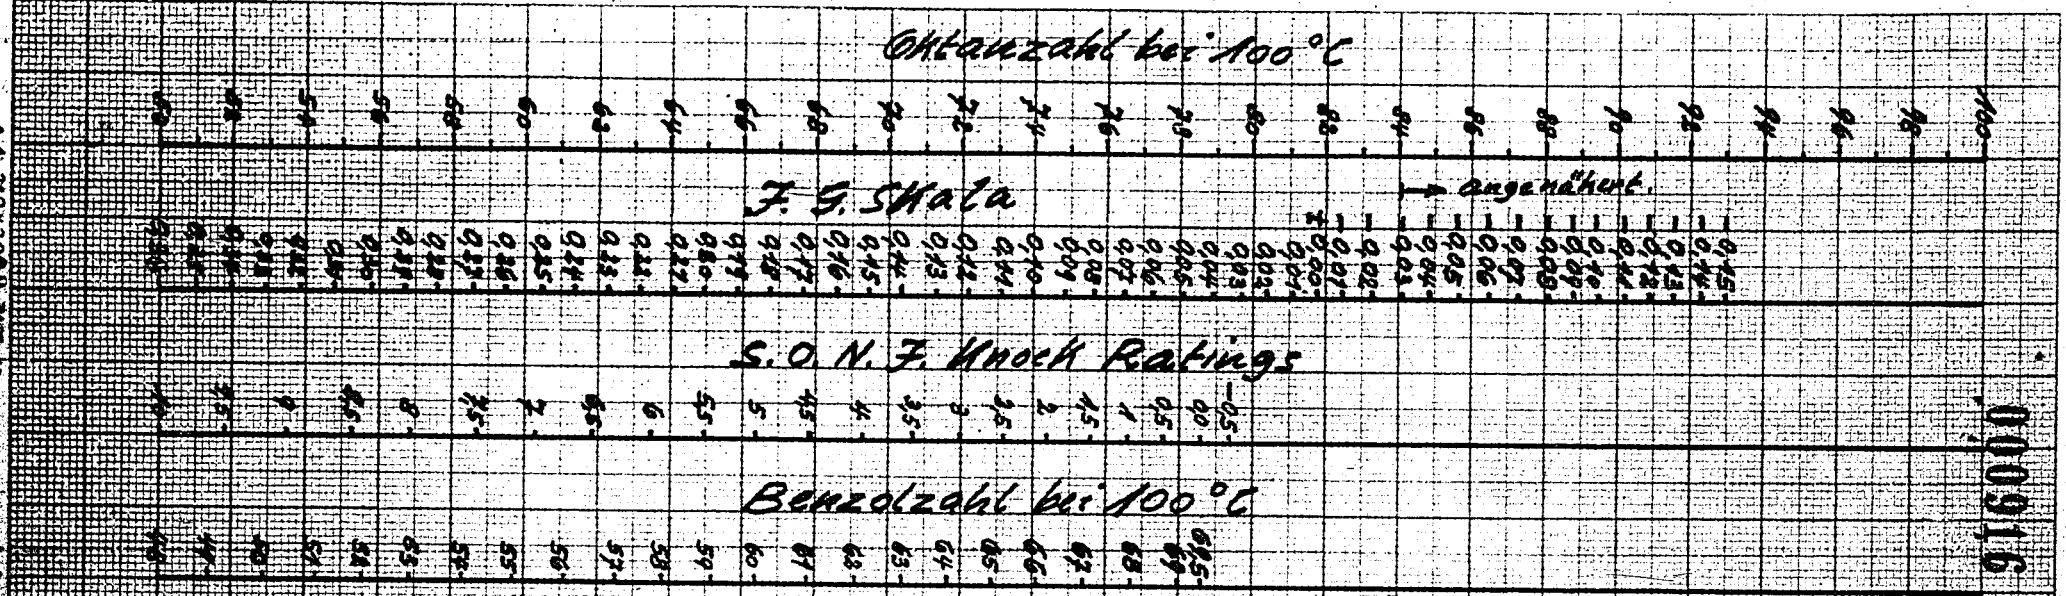 Oktanzahl bei 100 °C
52 54 56 58 60 62 64 66 68 70 72 74 76 78 80 82 84 86 88 90 92 94 96 98 100
→ angenähert.
I. G. Skala
0,30 0,29 0,28 0,27 0,26 0,25 0,24 0,23 0,22 0,21 0,20 0,19 0,18 0,17 0,16 0,15 0,14 0,13 0,12 0,11 0,10 0,09 0,08 0,07 0,06 0,05 0,04 0,03 0,02 0,01 ± 0,00 - 0,01 - 0,02 - 0,03 - 0,04 - 0,05 - 0,06 - 0,07 - 0,08 - 0,09 - 0,10 - 0,11 - 0,12 - 0,13 - 0,14 - 0,15
S. O. N. J. Knock Ratings
10 9,5 9 8,5 8 7,5 7 6,5 6 5,5 5 4,5 4 3,5 3 2,5 2 1,5 1 0,5 0,0 -0,5
Benzolzahl bei 100 °C
48 49 50 51 52 53 54 55 56 57 58 59 60 61 62 63 64 65 66 67 68 69 69,5
000916